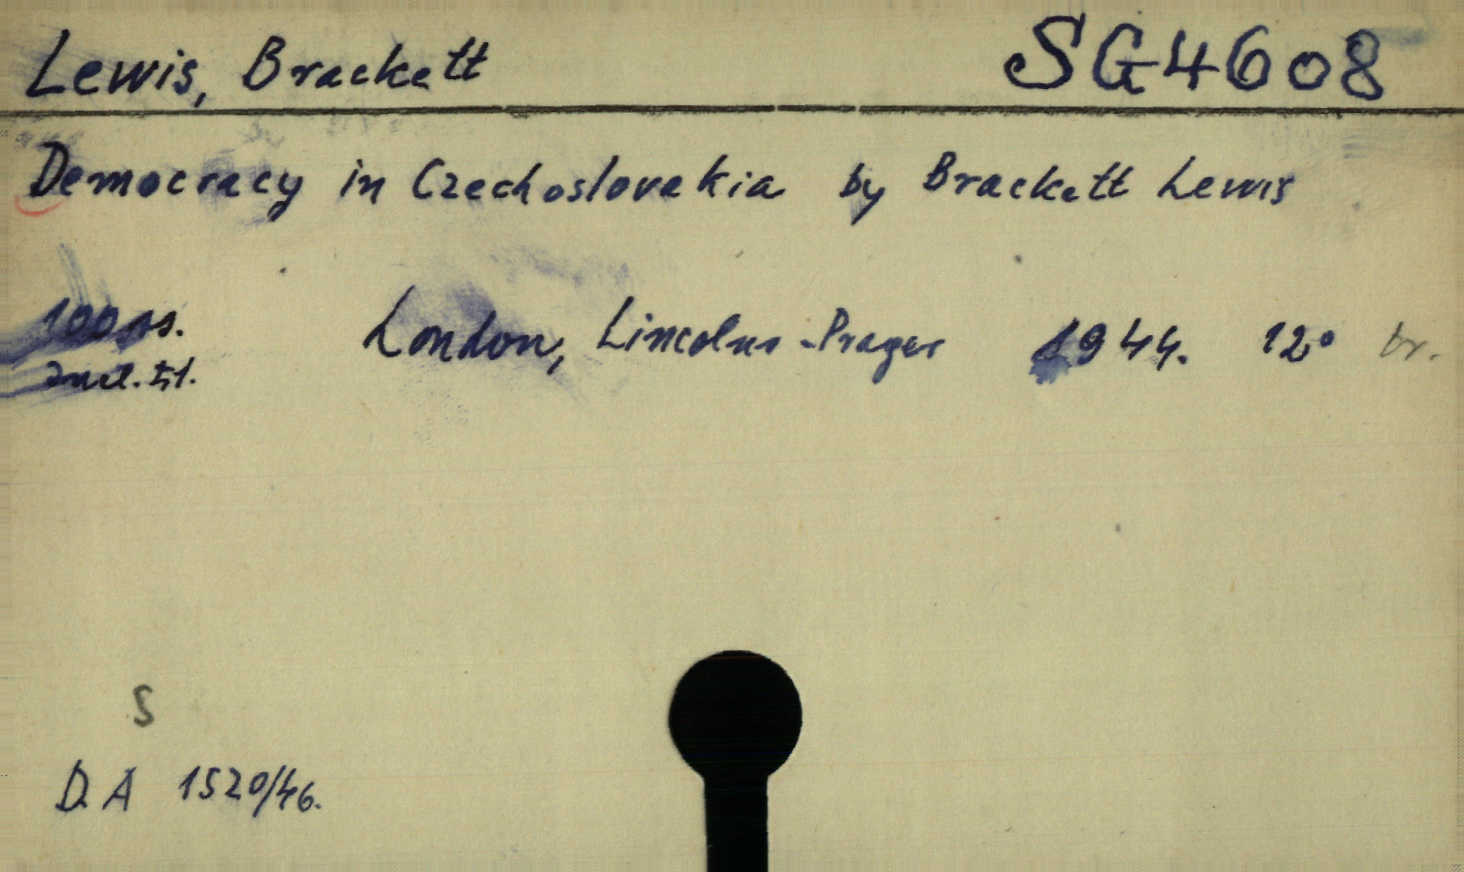 Lewis, Brackett SG4608
Democracy in Czechoslovakia by Brackett Lewis
100 ss. London, Lincolns-Prager 1944. 12° br.
incl. tit.
S
D.A 1520/46.